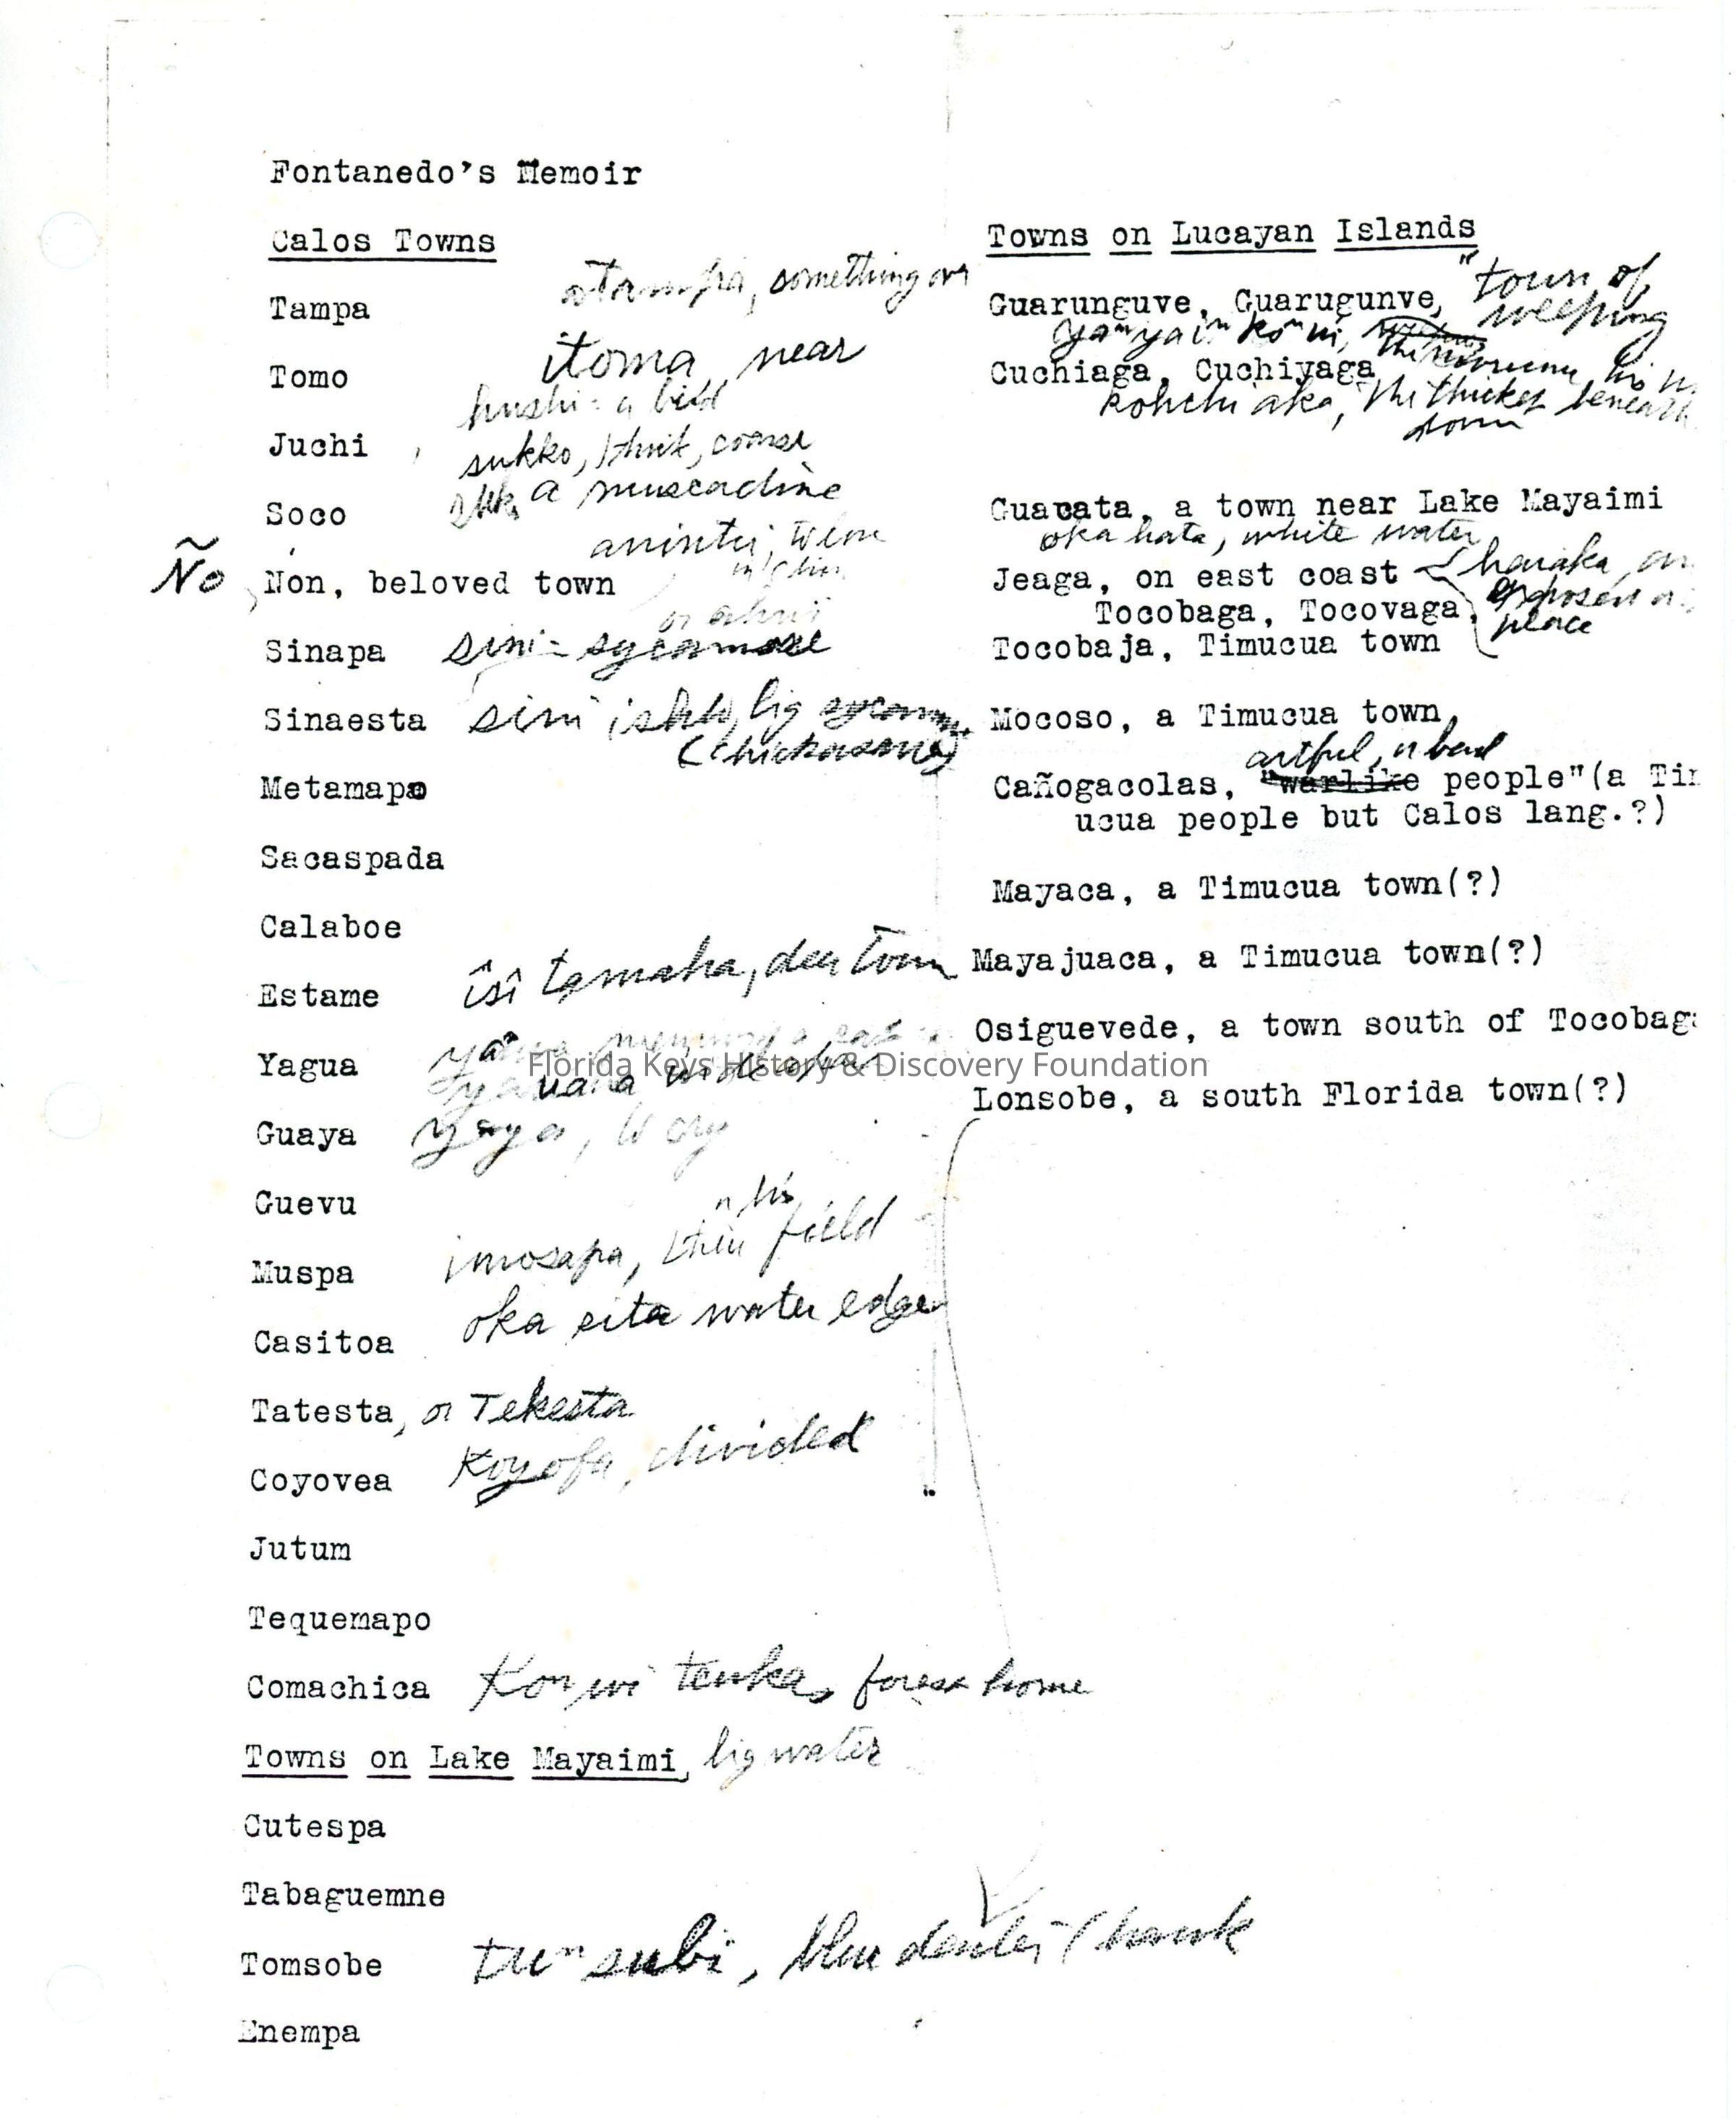 Fontanedo's Memoir
Calos Towns
atampa, something over
Tampa
itoma near
Tomo
hushi = a bird
Juchi
sukko, thick, coarse
a muscadine
Soco
Ño Non, beloved town
Sinapa sini = sycamore
Sinaesta sini ishto, big sycamore
(Chickasaw)
Metamapo
Sacaspada
Calaboe
Estame îsî tamaha, deer town
Yagua
wide open
Guaya yaya, to cry
Guevu
Muspa imosapa, their field
Casitoa oka sita water edge
Tatesta, or Tekesta
Coyovea Koyofa, divided
Jutum
Tequemapo
Comachica Konwi tenka, forest home
Towns on Lake Mayaimi, big water
Cutespa
Tabaguemne
Tomsobe tunsubi, blue hawk
Enempa
Towns on Lucayan Islands
Guarunguve, Guarugunve, "town of
weeping
Cuchiaga, Cuchiyaga
kohchi aka, the thicket beneath
down
Guacata, a town near Lake Mayaimi
oka hata, white water
Jeaga, on east coast
Tocobaga, Tocovaga,
place
Tocobaja, Timucua town
Mocoso, a Timucua town,
artful, or
Cañogacolas, "warlike people"(a Tim
ucua people but Calos lang.?)
Mayaca, a Timucua town(?)
Mayajuaca, a Timucua town(?)
Osiguevede, a town south of Tocobaga
Lonsobe, a south Florida town(?)
Florida Keys History & Discovery Foundation